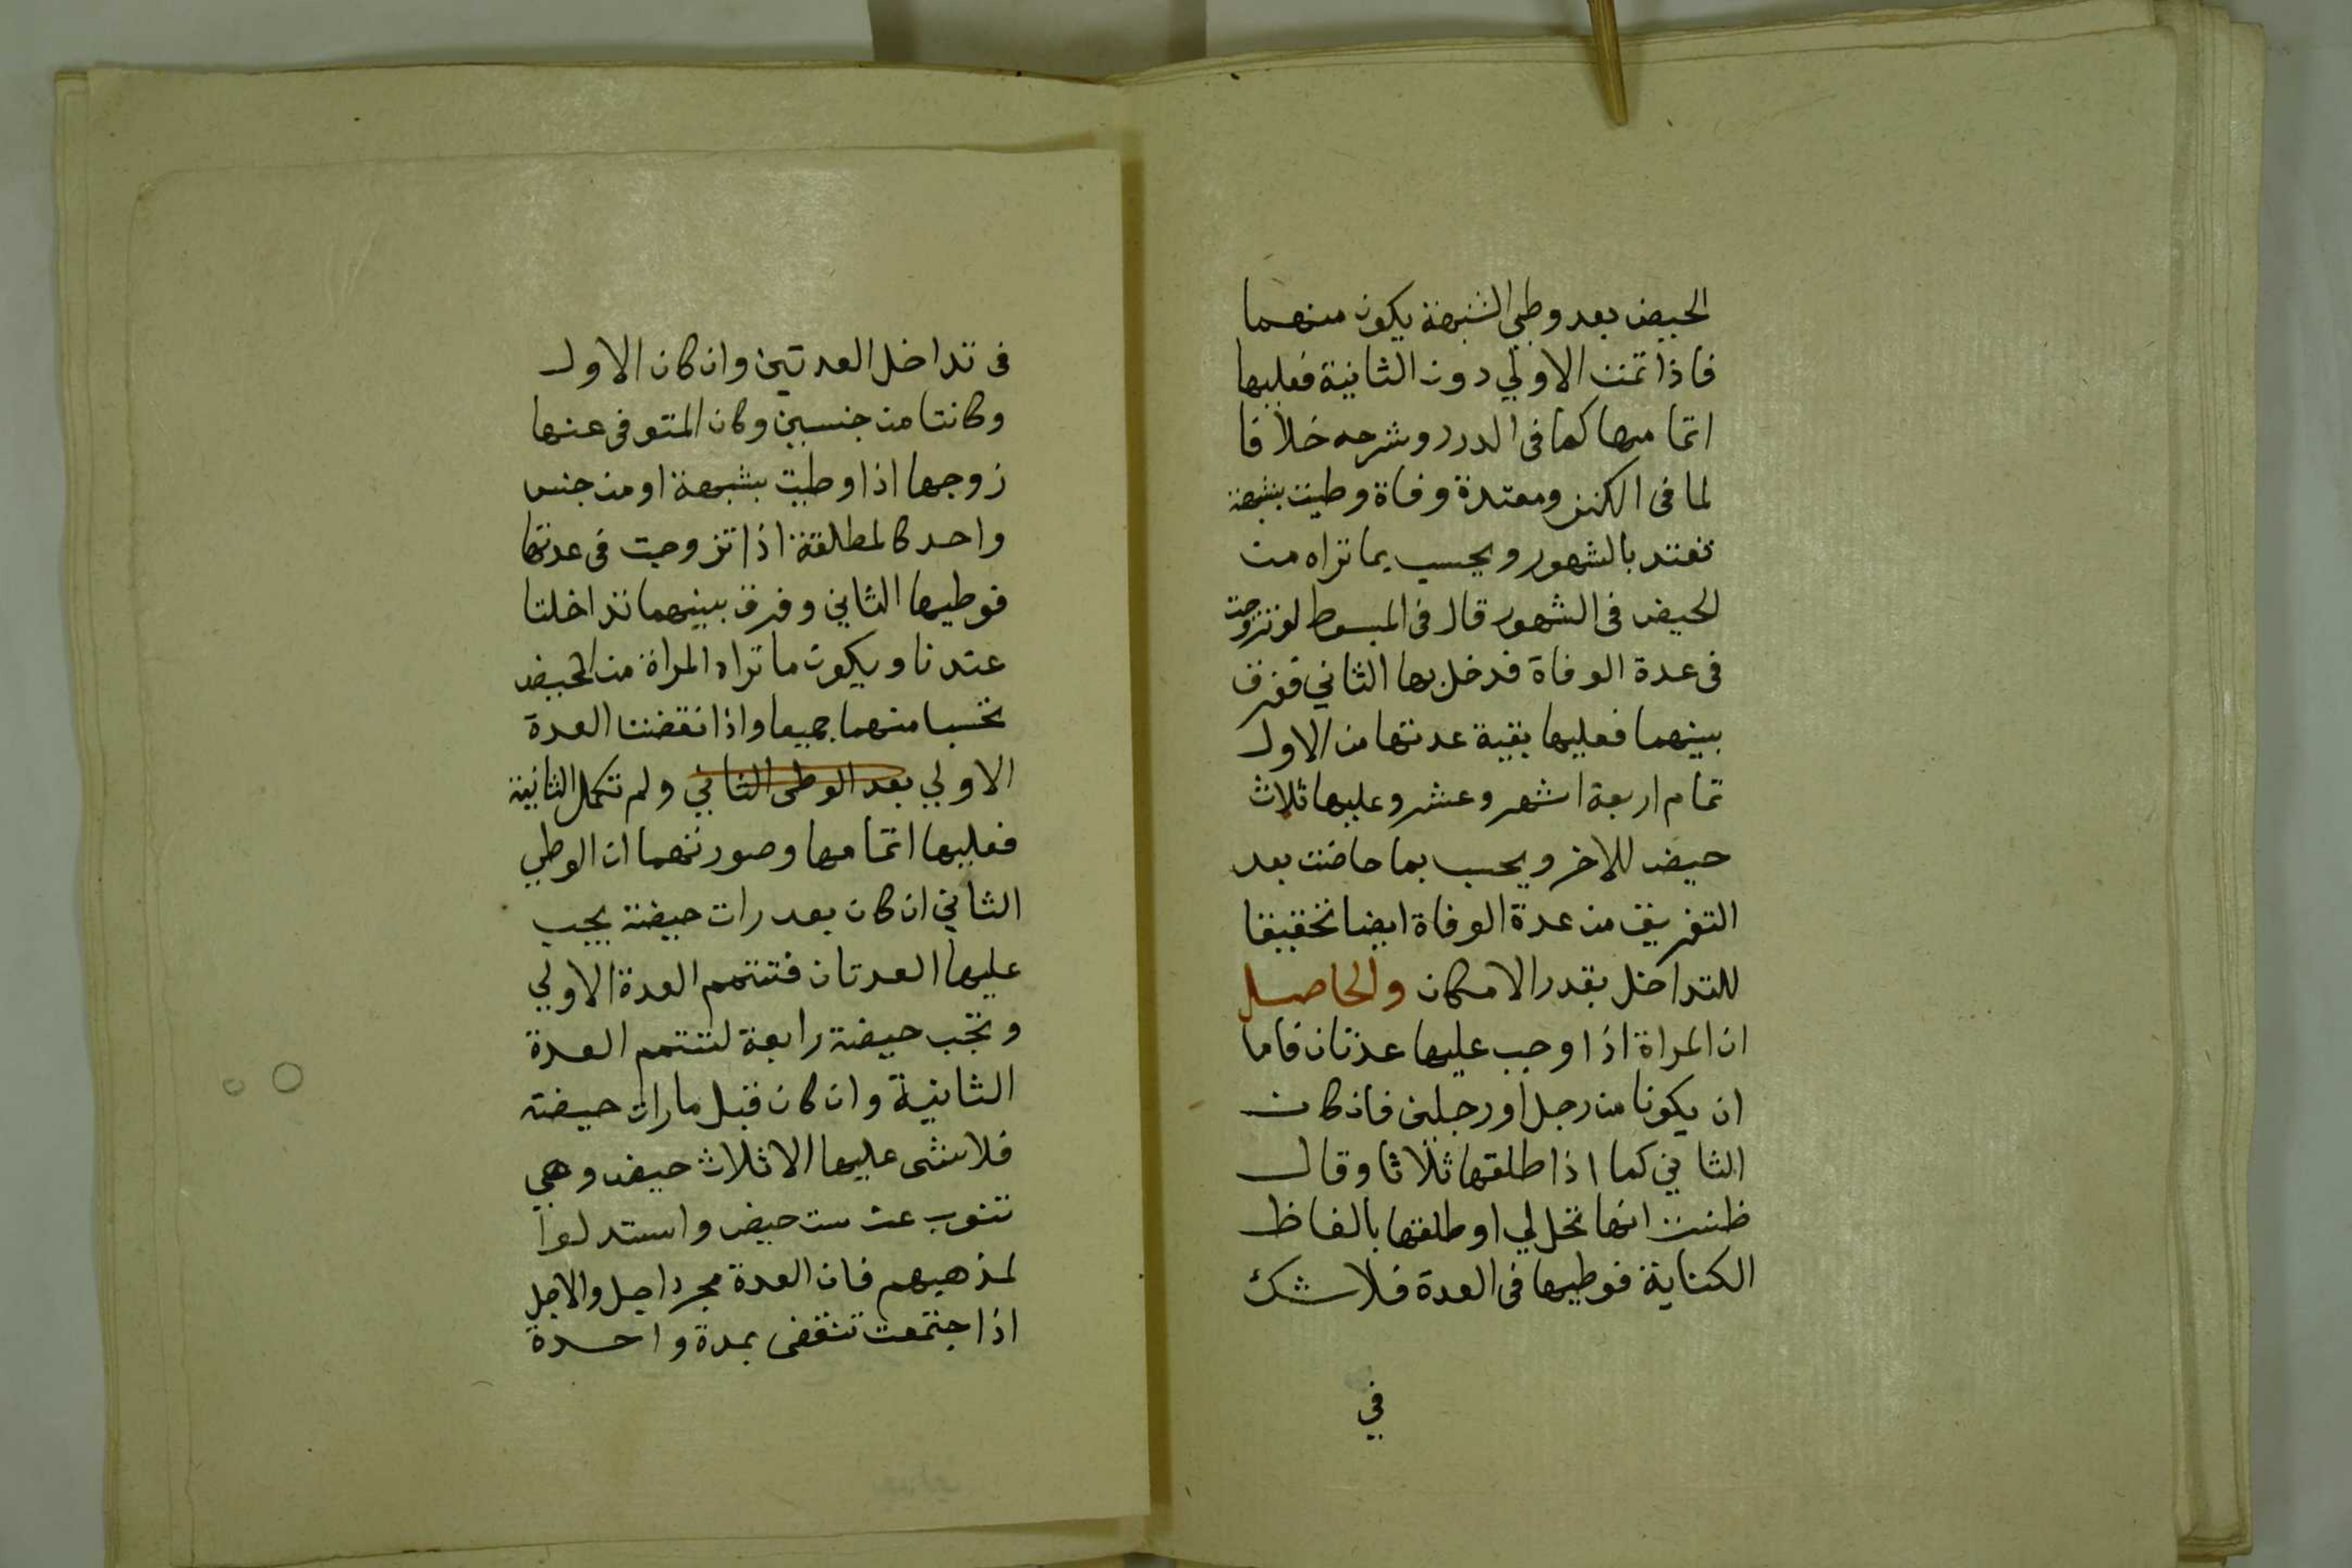 الحيض بعد وطي الشبهة يكون منهما
فاذا تمت الاولي دون الثانية فعليها
اتمامها كما فى الدرر وشرحه خلافا
لما فى الكنز ومعتدة وفاة وطيت بشبهة
تعتد بالشهور ويحسب بما تراه من
الحيض فى الشهور قال فى المبسوط لو تزوجت
فى عدة الوفاة فدخل بها الثاني ففرق
بينهما فعليها بقية عدتها من الاول
تمام اربعة اشهر وعشر وعليها ثلاث
حيض للاخر ويحسب بما حاضت بعد
التفريق من عدة الوفاة ايضا تحقيقا
للتداخل بقدر الامكان والحاصل
ان المراة اذا وجب عليها عدتان فاما
ان يكونا من رجل او رجلين فان كان
الثاني كما اذا طلقها ثلاثا وقال
ظننت انها تحل لي او طلقها بالفاظ
الكناية فوطيها فى العدة فلا شك
في
فى تداخل العدتين وان كان الاول
وكانتا من جنسين وكان المتوفى عنها
زوجها اذا وطيت بشبهة او من جنس
واحد كالمطلقة اذا تزوجت فى عدتها
فوطيها الثاني وفرق بينهما تداخلتا
عتدنا ويكون ما تراه المراة من الحيض
تحتسبا منهما جميعا واذا نقضت العدة
الاولي بعد الوطى الثاني ولم تكمل الثانية
فعليها اتمامها وصورتهما ان الوطي
الثاني ان كان بعد رات حيضة يجب
عليها العدتان فتتمم العدة الاولي
وتجب حيضة رابعة لتتمم العدة
الثانية وان كان قبل ما رات حيضة
فلا شى عليها الا ثلاث حيض وهي
تنوب عن ست حيض واستدلوا
لمذهبهم فان العدة مجرد اجل والاجل
اذا جتمعت تنقضى بمدة واحدة